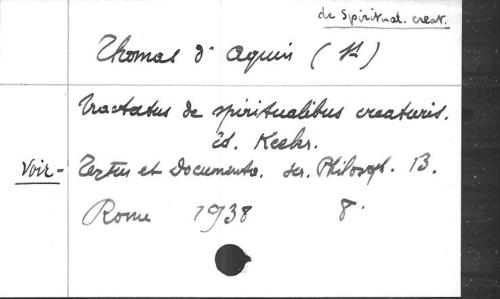 de Spiritual. creat.
Thomas d' Aquin (St)
Tractatus de spiritualibus creaturis.
Ed. Keeler.
Voir - Textus et Documenta. Ser. Philosoph. B.
Rome 1938 8°.